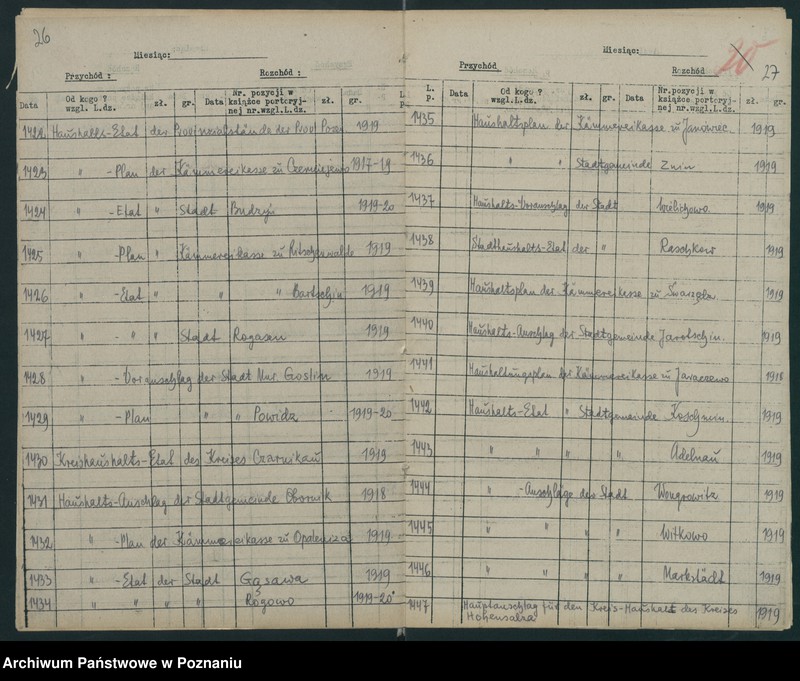 26
Miesiąc:
Przychód :
Rozchód :
Data
Od kogo ? wzgl. L.dz.
zł.
gr.
Data
Nr. pozycji w książce portoryjnej nr.wzgl.L.dz.
zł.
gr.
1422 Haushalts-Etat der Provinzialstände der Prov Posen 1919
1423 " -Plan der Kämmereikasse zu Czerniejewo 1917-19
1424 " -Etat " Stadt Budzyń 1919-20
1425 " -Plan " Kämmereikasse zu Ritschenwalde 1919
1426 " -Etat " " " Bartschin 1919
1427 " - " " Stadt Rogasen 1919
1428 " -Voranschlag der Stadt Mur. Goslin 1919
1429 " -Plan " " Powidz 1919-20
1430 Kreishaushalts-Etat des Kreises Czarnikau 1919
1431 Haushalts-Anschlag der Stadtgemeinde Obornik 1918
1432 " -Plan der Kämmereikasse zu Opalenitza 1919
1433 " -Etat der Stadt Gąsawa 1919
1434 " " " " Rogowo 1919-20
20
27
Miesiąc:
Przychód
Rozchód
L. p.
Data
Od kogo ? wzgl.L.dz.
zł.
gr.
Data
Nr.pozycji w książce portoryjnej nr.wzgl.L.dz.
zł.
gr.
1435 Haushaltsplan der Kämmereikasse zu Janowiec. 1919
1436 " " Stadtgemeinde Znin 1919
1437 Haushalts-Voranschlag der Stadt Wielichowo. 1919
1438 Stadthaushalts-Etat der " Raschkow 1919
1439 Haushaltsplan der Kämmereikasse zu 1919
1440 Haushalts-Anschlag der Stadtgemeinde Jarotschin. 1919
1441 Haushaltungsplan der Kämmereikasse zu Jaraczewo 1918
1442 Haushalts-Etat " Stadtgemeinde Koschmin. 1919
1443 " " " " Adelnau 1919
1444 " -Anschläge der Stadt Wongrowitz 1919
1445 " " " " Witkowo 1919
1446 " " " " Markstädt 1919
1447 Hauptanschlag für den Kreis-Haushalt des Kreises Hohensalza 1919
Archiwum Państwowe w Poznaniu